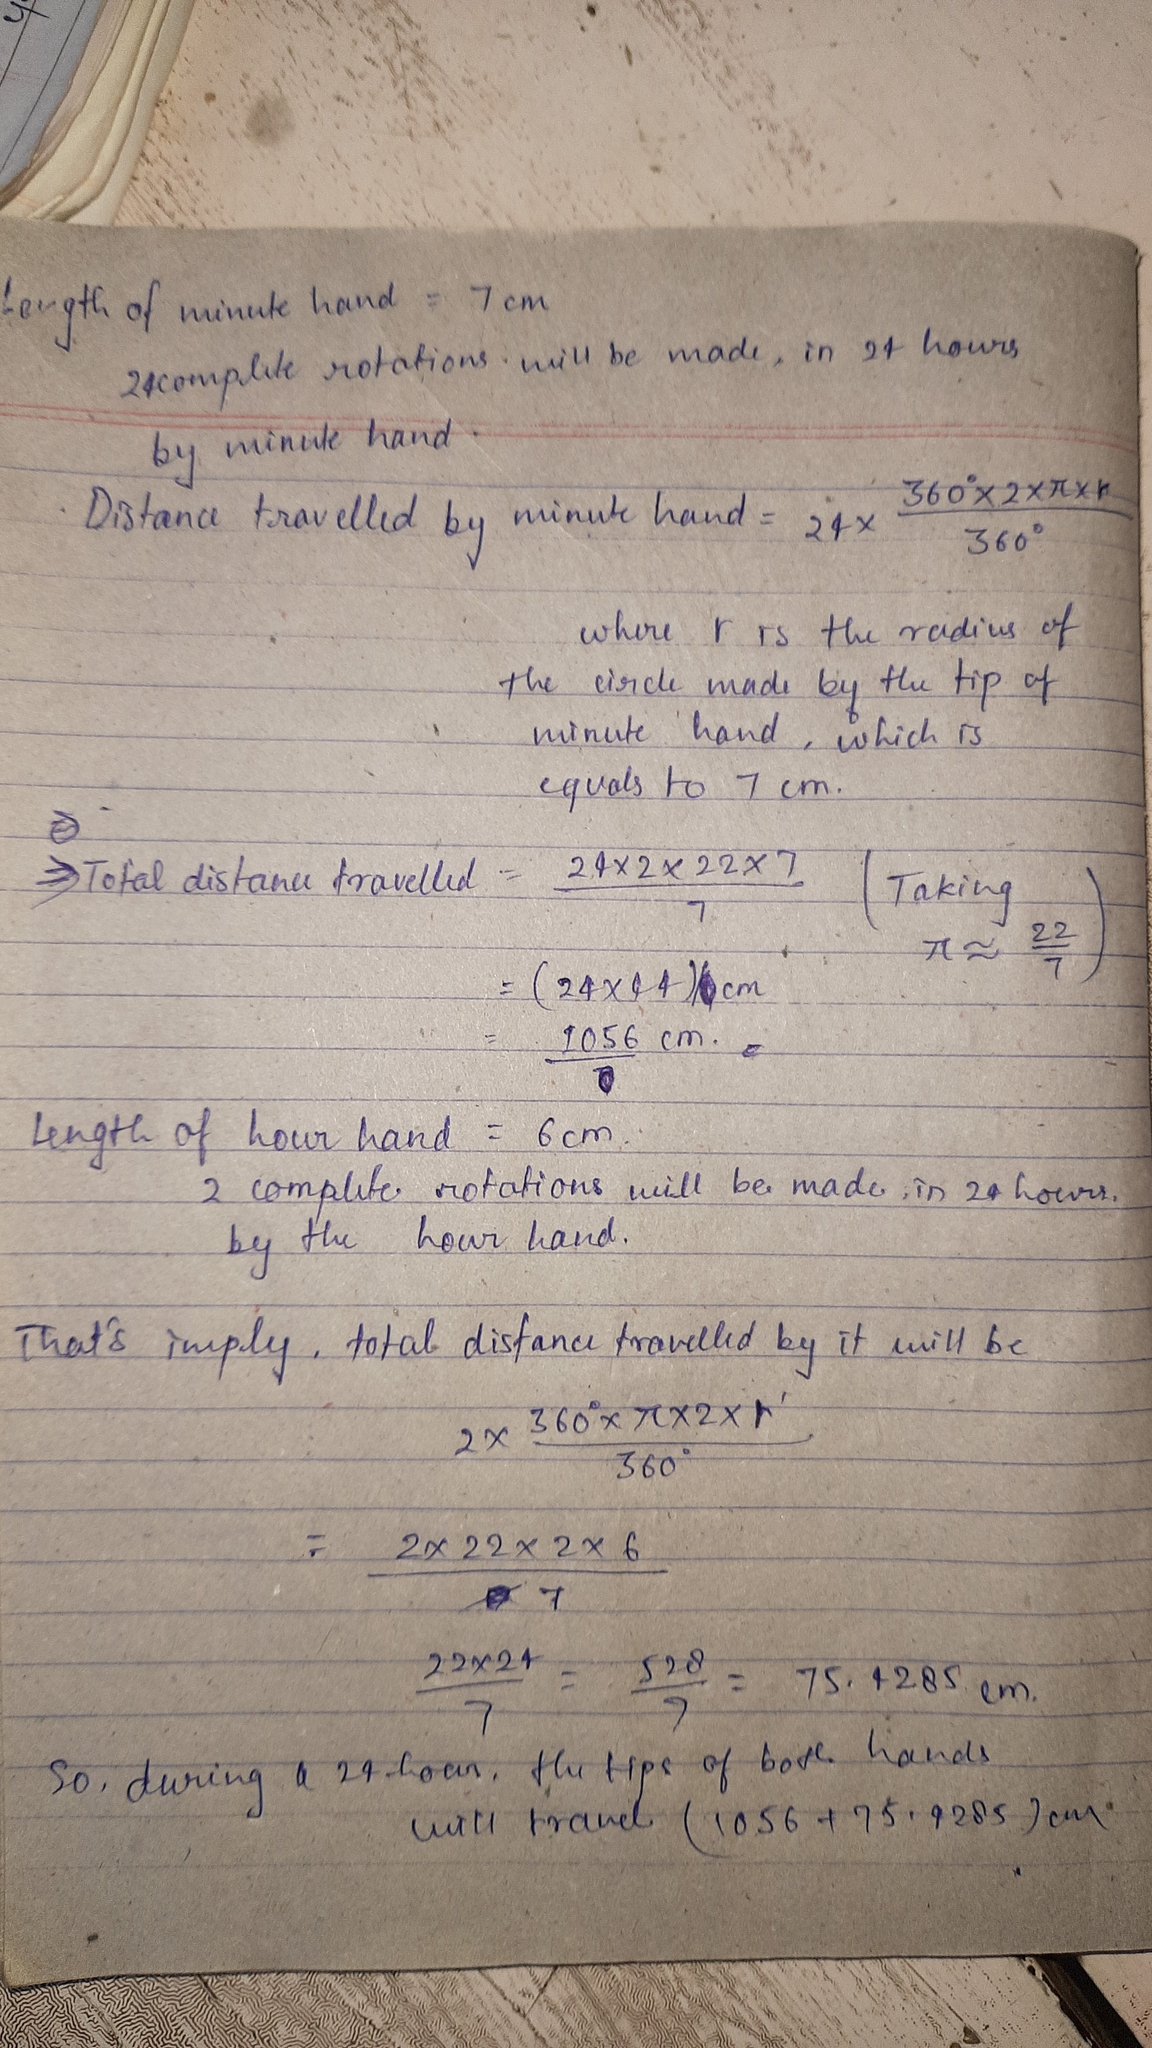 Length of minute hand = 7 cm
24 complete rotations will be made, in 24 hours
by minute hand.
Distance travelled by minute hand = 24 × (360° × 2 × π × r) / 360°
where r is the radius of
the circle made by the tip of
minute hand, which is
equals to 7 cm.
⇒ Total distance travelled = (24 × 2 × 22 × 7) / 7 (Taking π ≈ 22/7)
= (24 × 44) cm
= 1056 cm.
Length of hour hand = 6 cm.
2 complete rotations will be made, in 24 hours.
by the hour hand.
That's imply, total distance travelled by it will be
2 × (360° × π × 2 × r') / 360°
= (2 × 22 × 2 × 6) / 7
(22 × 24) / 7 = 528 / 7 = 75.4285 cm.
So, during a 24-hour, the tips of both hands
will travel (1056 + 75.4285) cm.